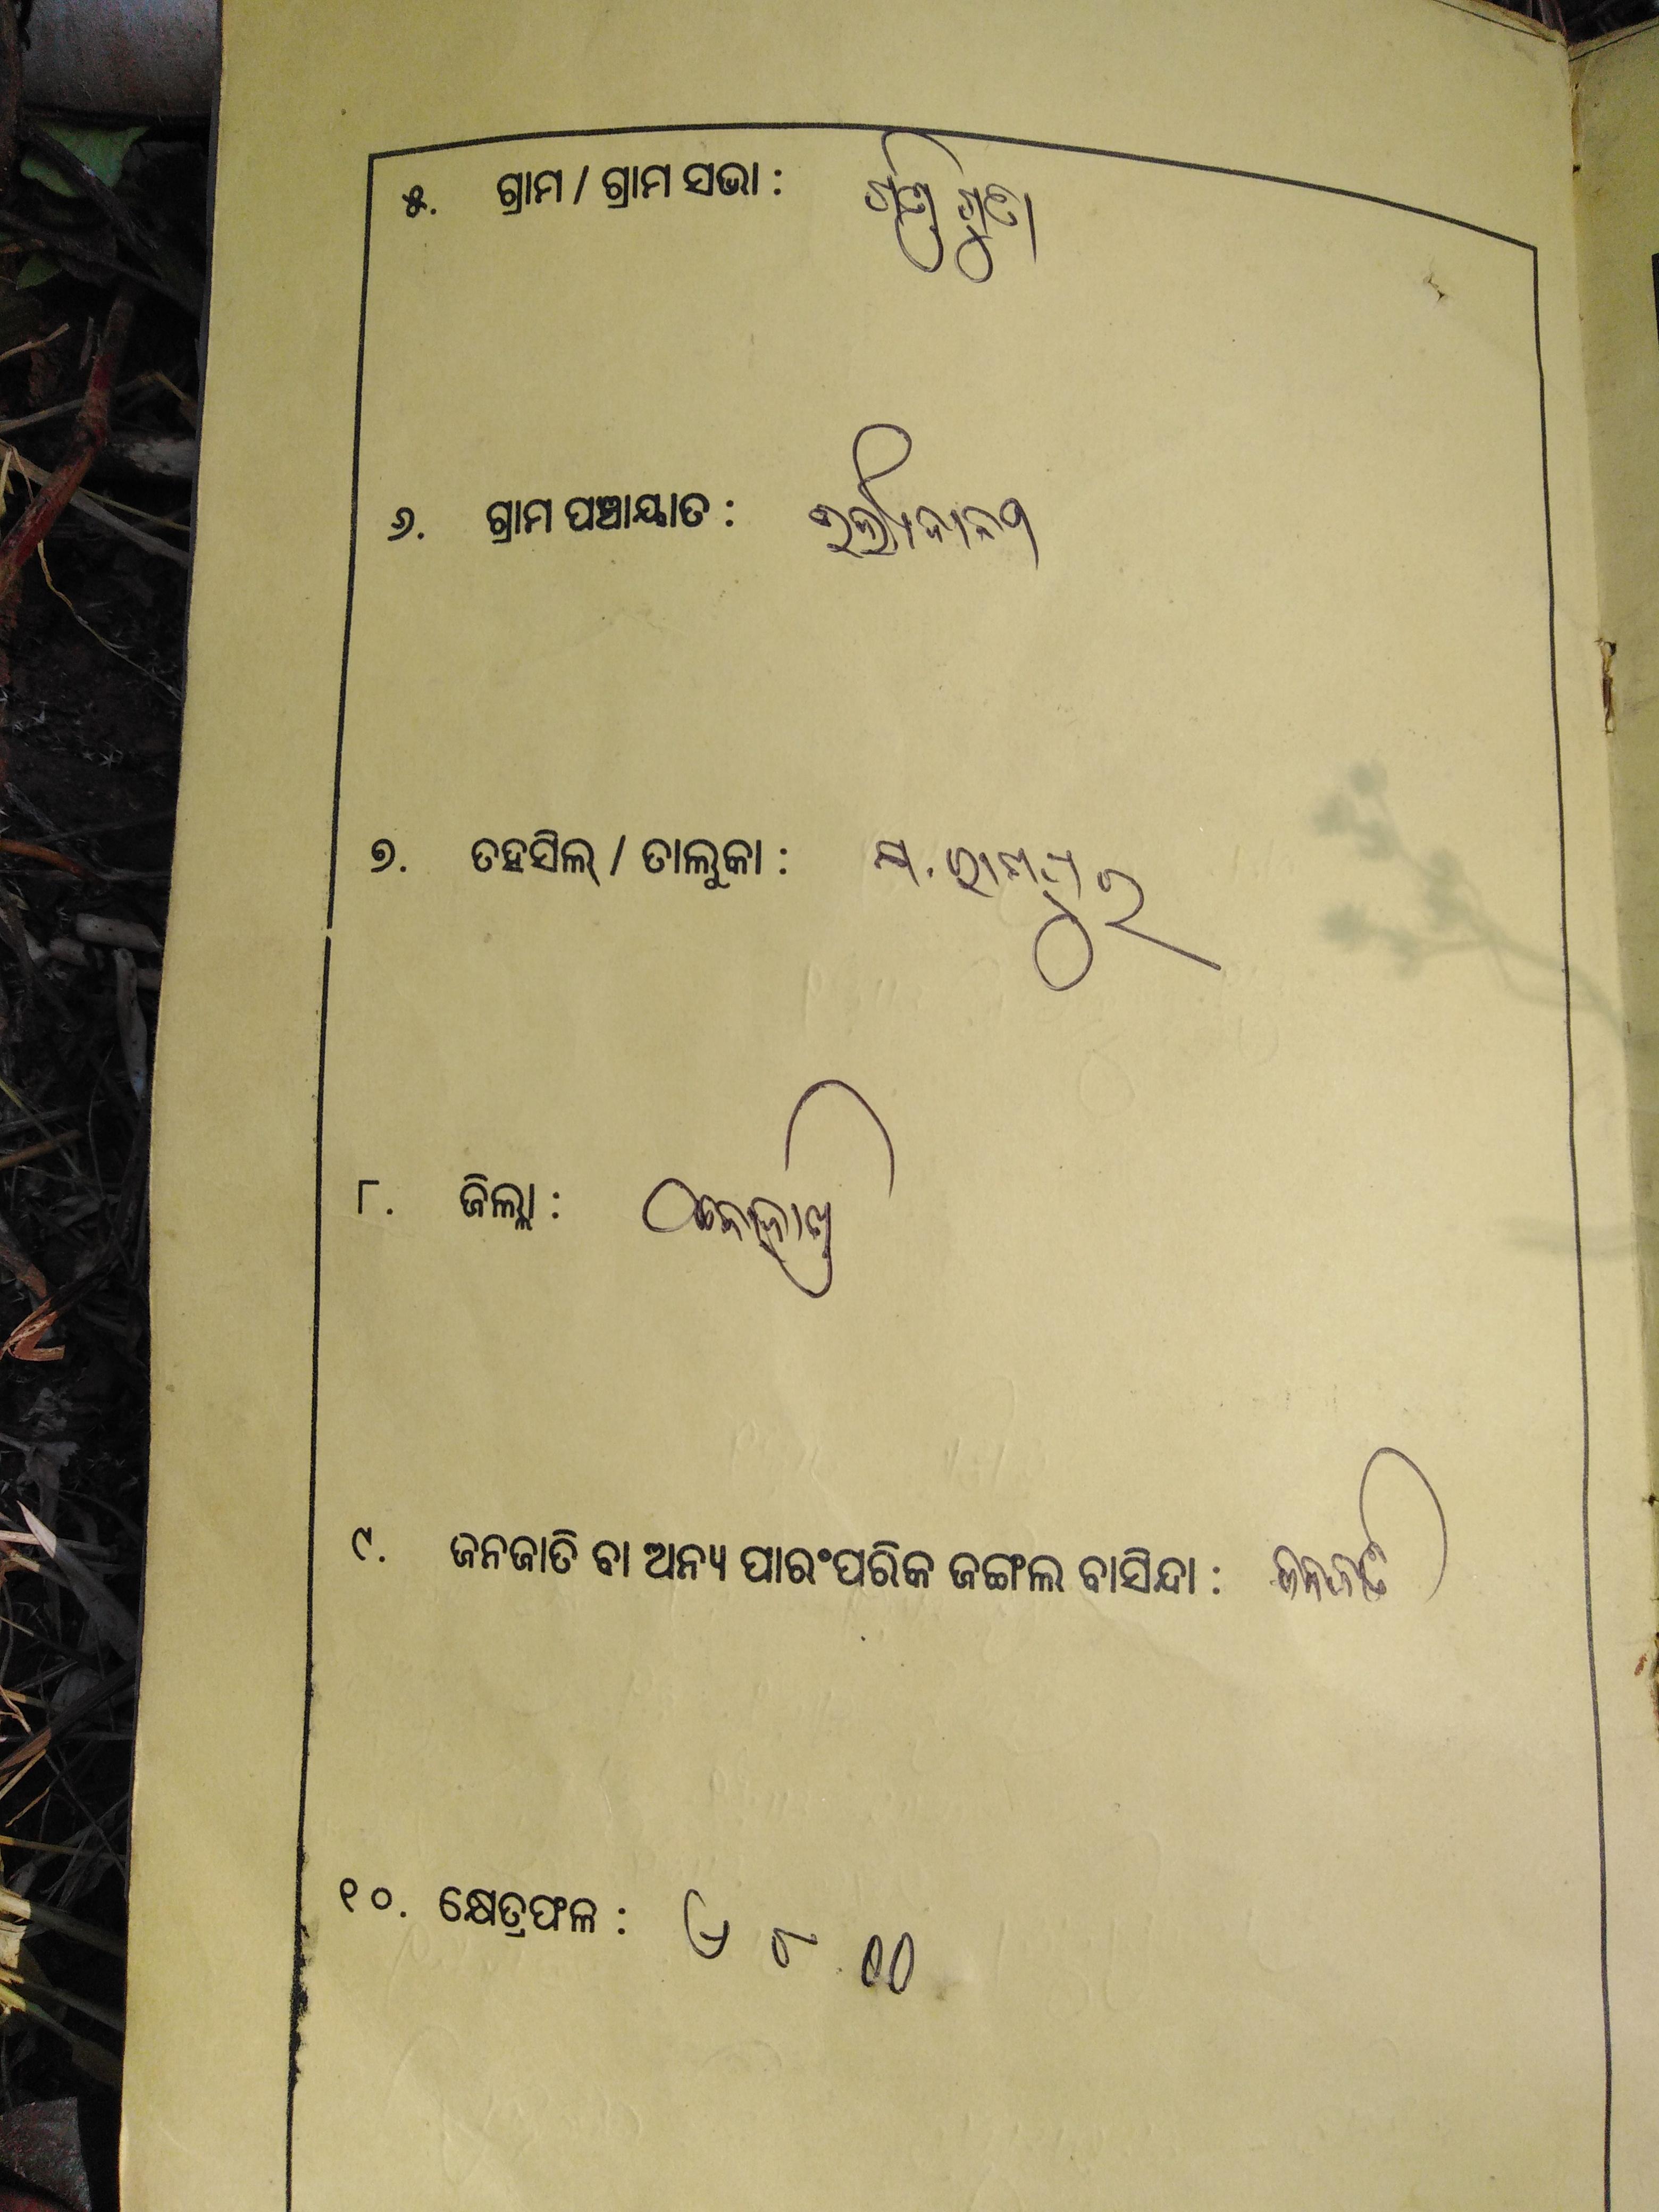 ୫. ଗ୍ରାମ / ଗ୍ରାମ ସଭା :
୬. ଗ୍ରାମ ପଞ୍ଚାୟାତ :
୭. ତହସିଲ୍ / ତାଲୁକା : ମ. ରାମପୁର
୮. ଜିଲ୍ଲା :
୯. ଜନଜାତି ବା ଅନ୍ୟ ପାରଂପରିକ ଜଙ୍ଗଲ ବାସିନ୍ଦା : ଜନଜାତି
୧୦. କ୍ଷେତ୍ରଫଳ :